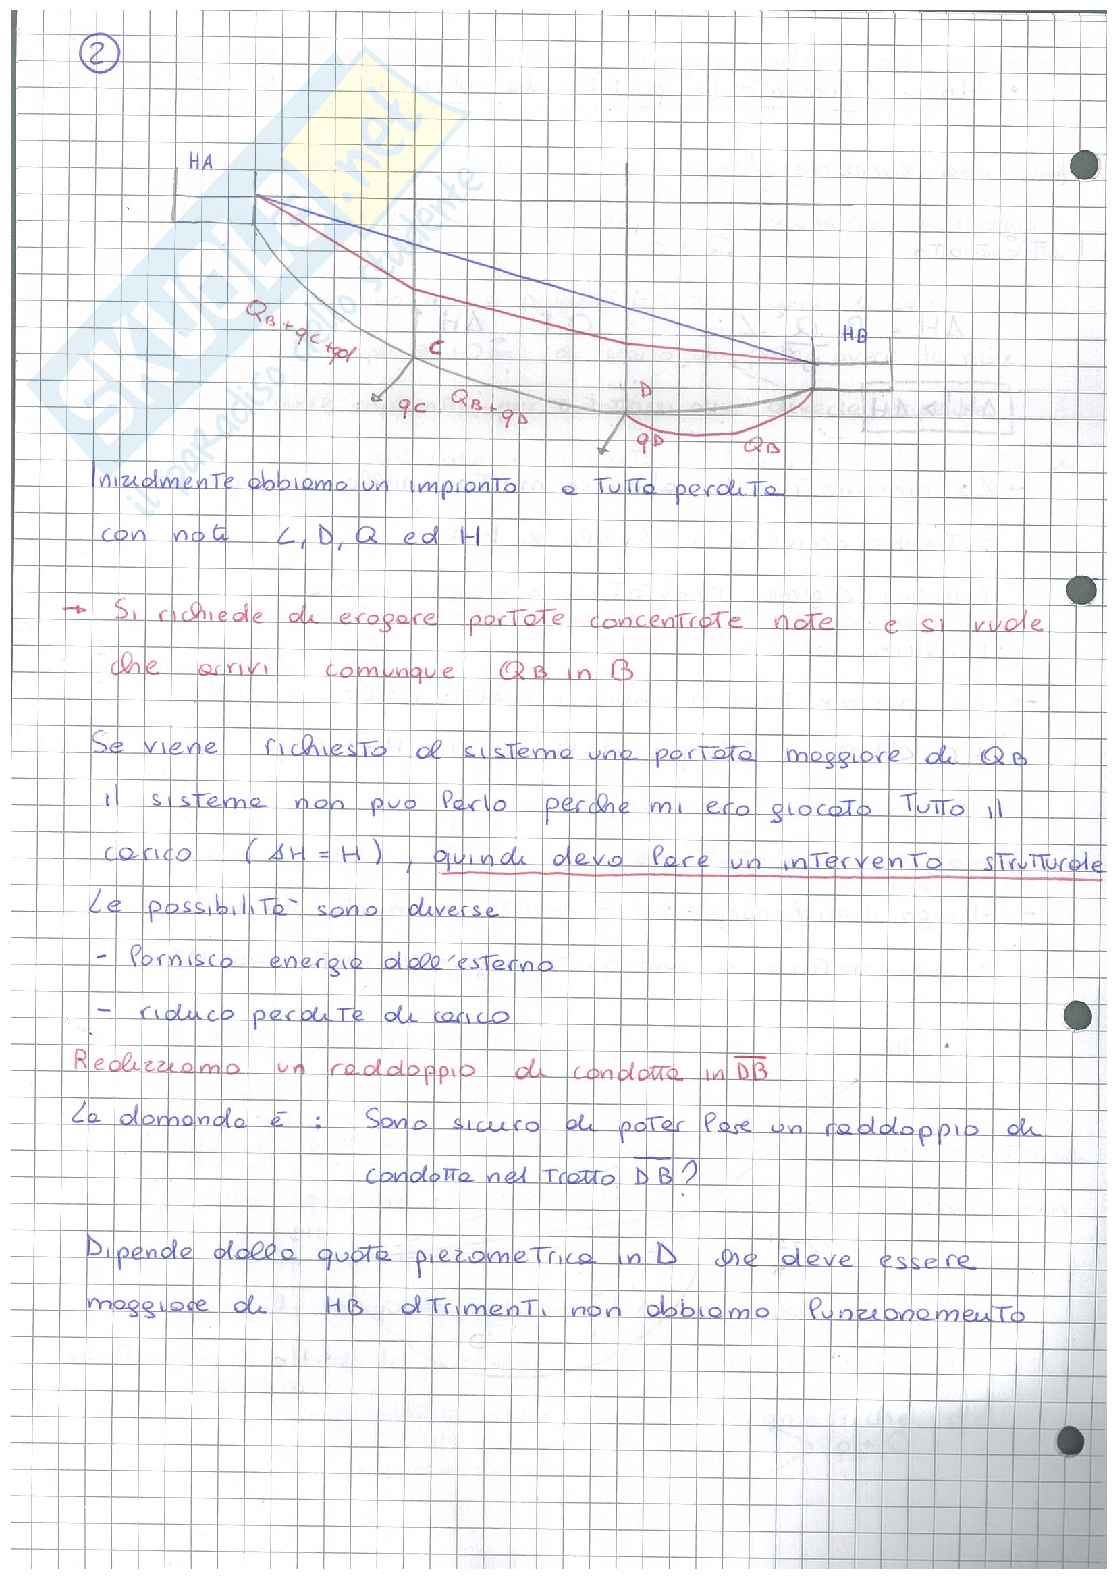 2
HA
HB
QB+qC+qd
C
qC
QB+qD
D
qD
QB
Inizialmente abbiamo un impianto a tutta perdita
con noti L, D, Q ed H
→ Si richiede di erogare portate concentrate note e si vuole
che arrivi comunque QB in B
Se viene richiesto al sistema una portata maggiore di QB
il sistema non puo farlo perche mi ero giocato tutto il
carico (ΔH = H), quindi devo fare un intervento strutturale
Le possibilità sono diverse
- fornisco energia dall'esterno
- riduco perdite di carico
Realizziamo un raddoppio di condotta in DB
La domanda è : Sono sicuro di poter fare un raddoppio di
condotta nel tratto DB?
Dipende dalla quota piezometrica in D che deve essere
maggiore di HB altrimenti non abbiamo funzionamento
SKUOLA.net
il paradiso dello studente